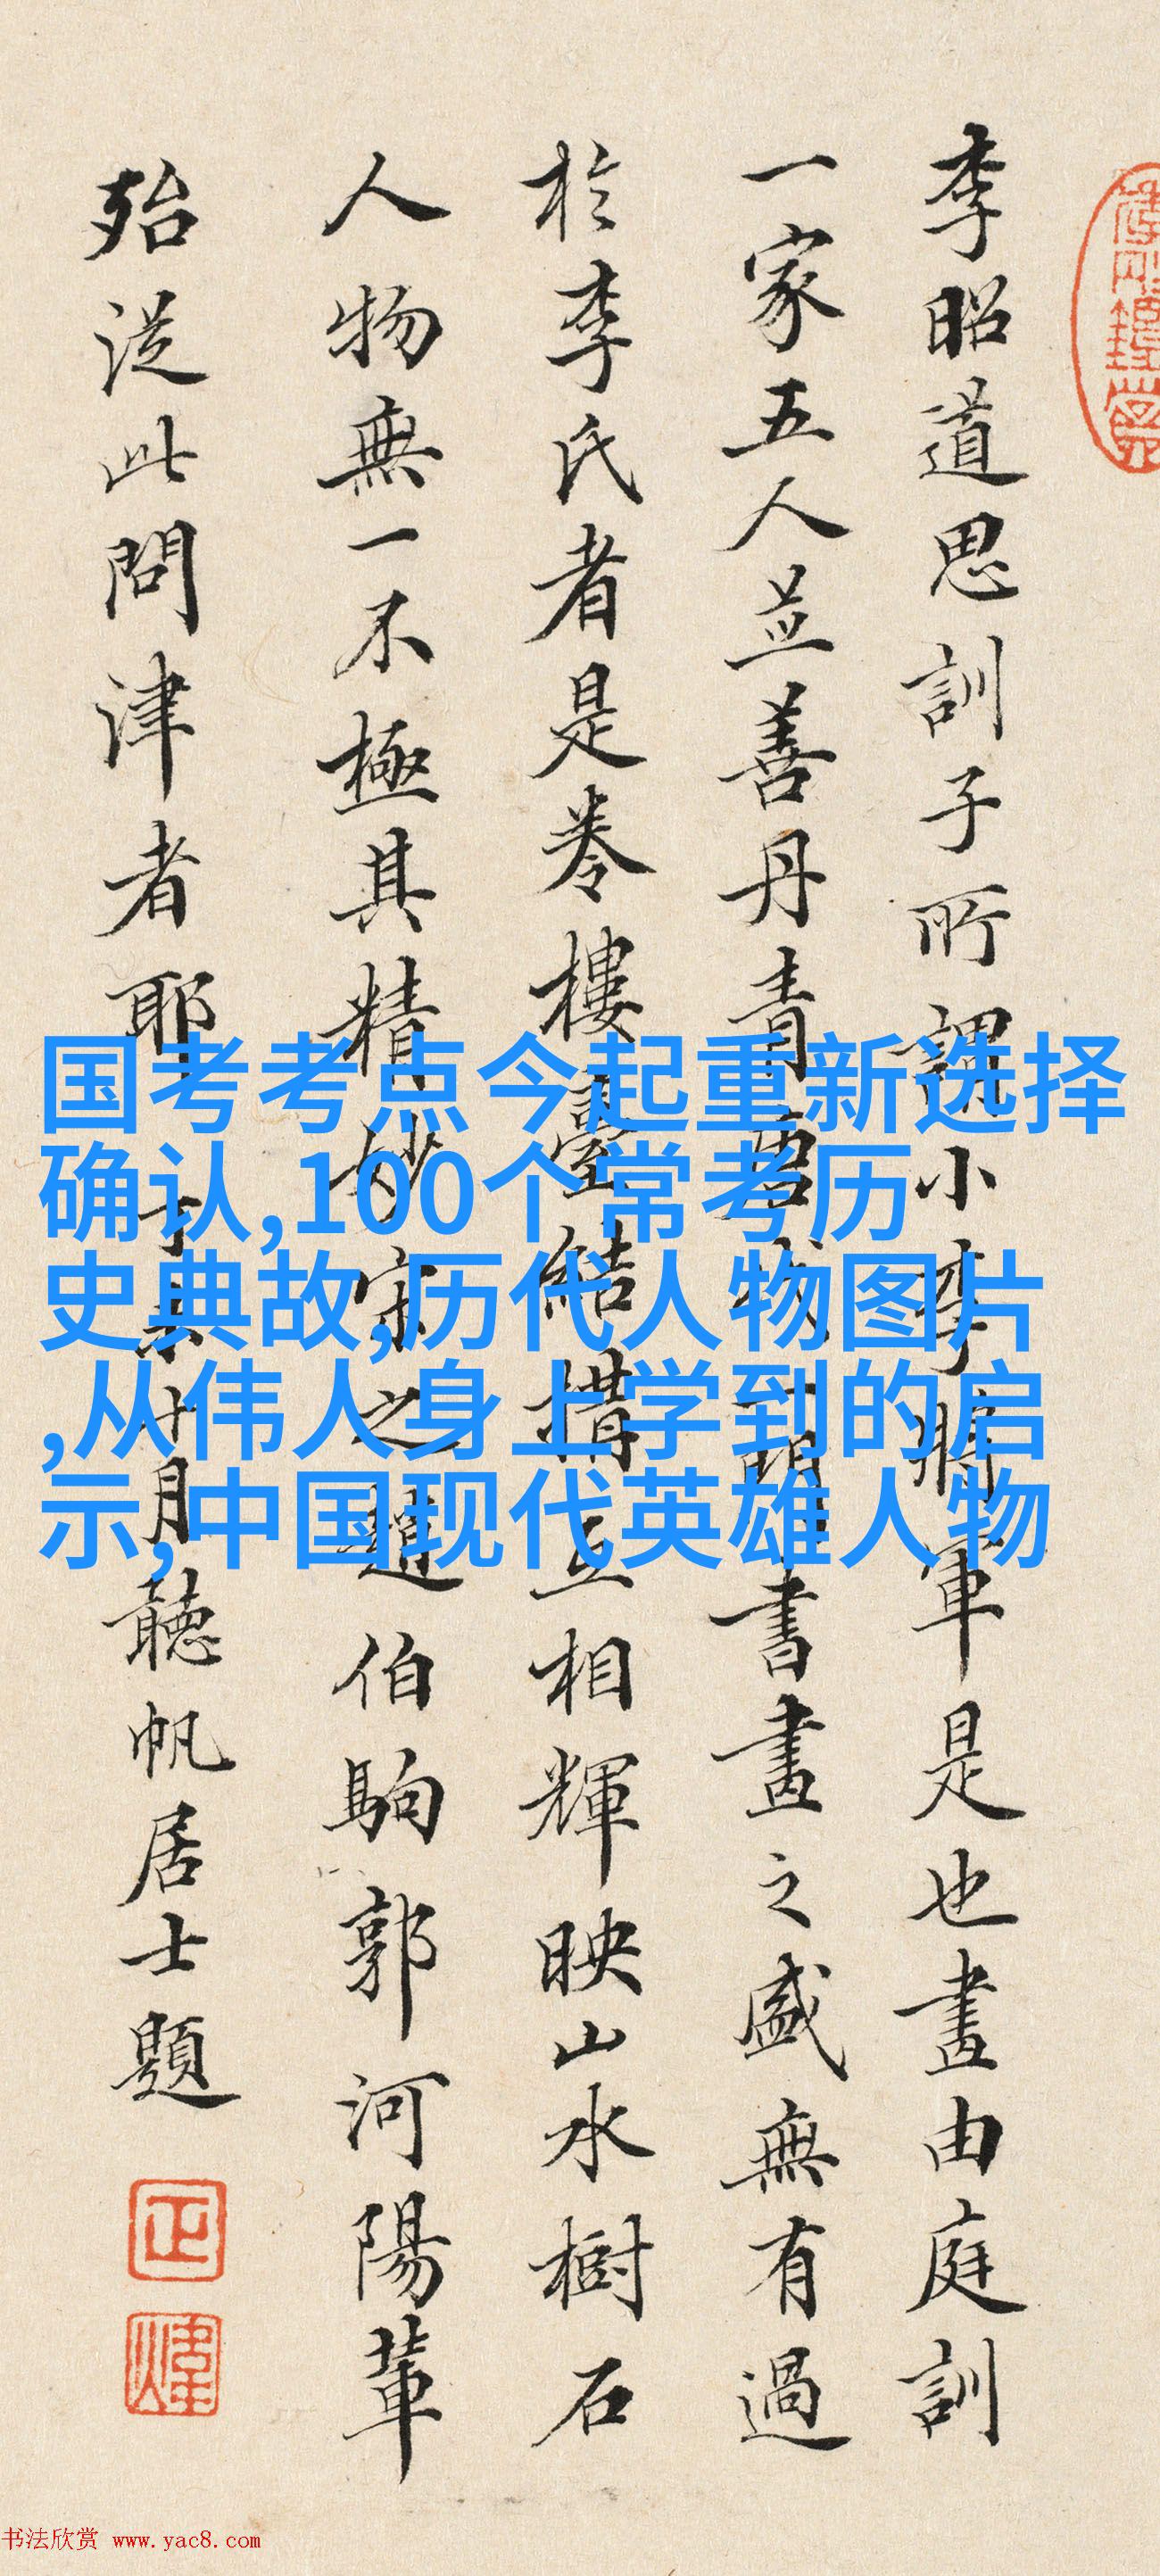 李昭道思訓子所謂小李將軍是也畫由庭訓
一家五人並善丹青書畫之盛無有過
於李氏者是卷樓臺結構互相輝映山水樹石
人物無一不極其精妙宋之趙伯駒郭河陽輩
殆從此問津者耶月聽帆居士題
国考考点今起重新选择
确认,100个常考历
史典故,历代人物图片
,从伟人身上学到的启
示,中国现代英雄人物
书法欣赏 www.yac8.com